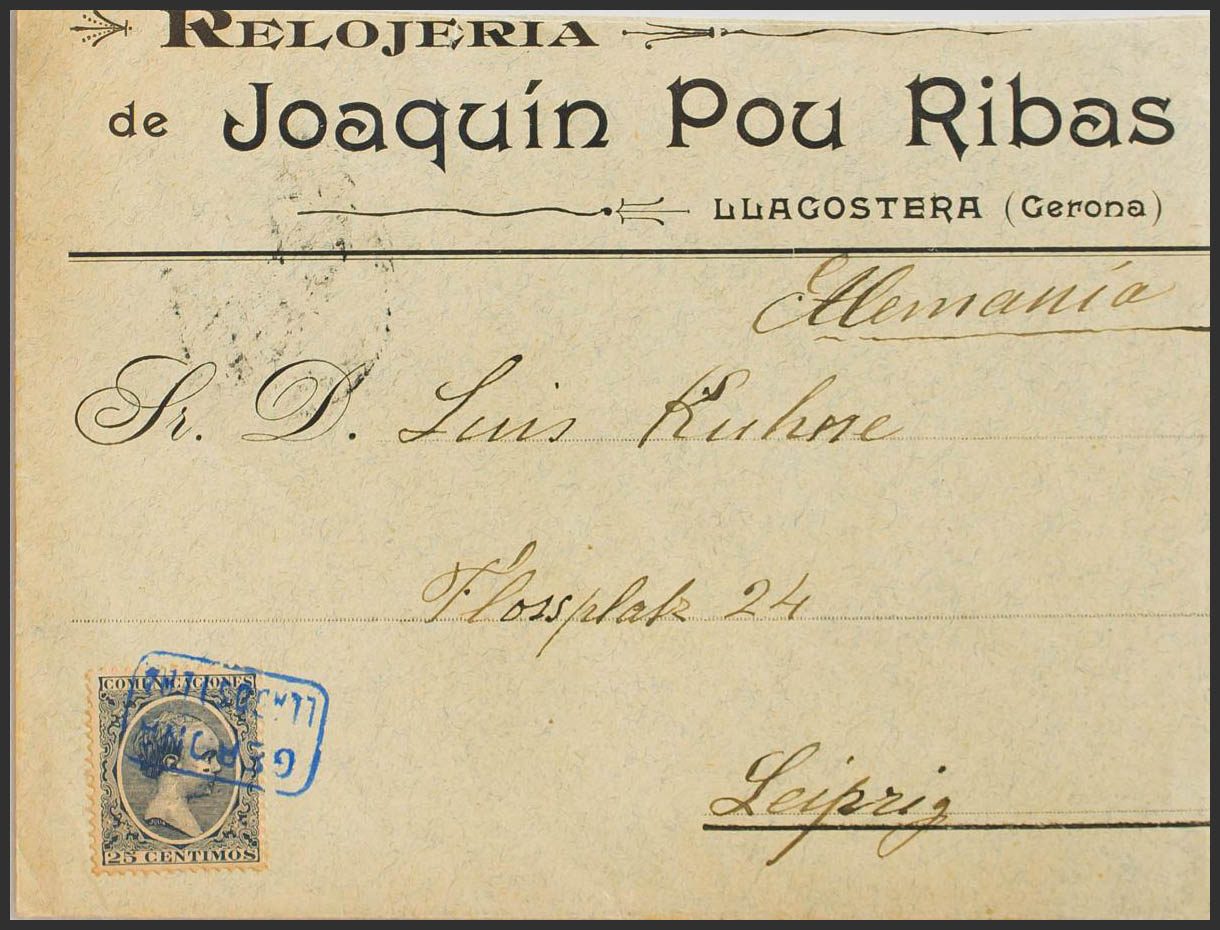 RELOJERIA
de Joaquín Pou Ribas
LLAGOSTERA (Gerona)
Alemania
Sr. D. Luis Kuhne
Flossplatz 24
Leipzig
COMUNICACIONES
25 CENTIMOS
GERONA